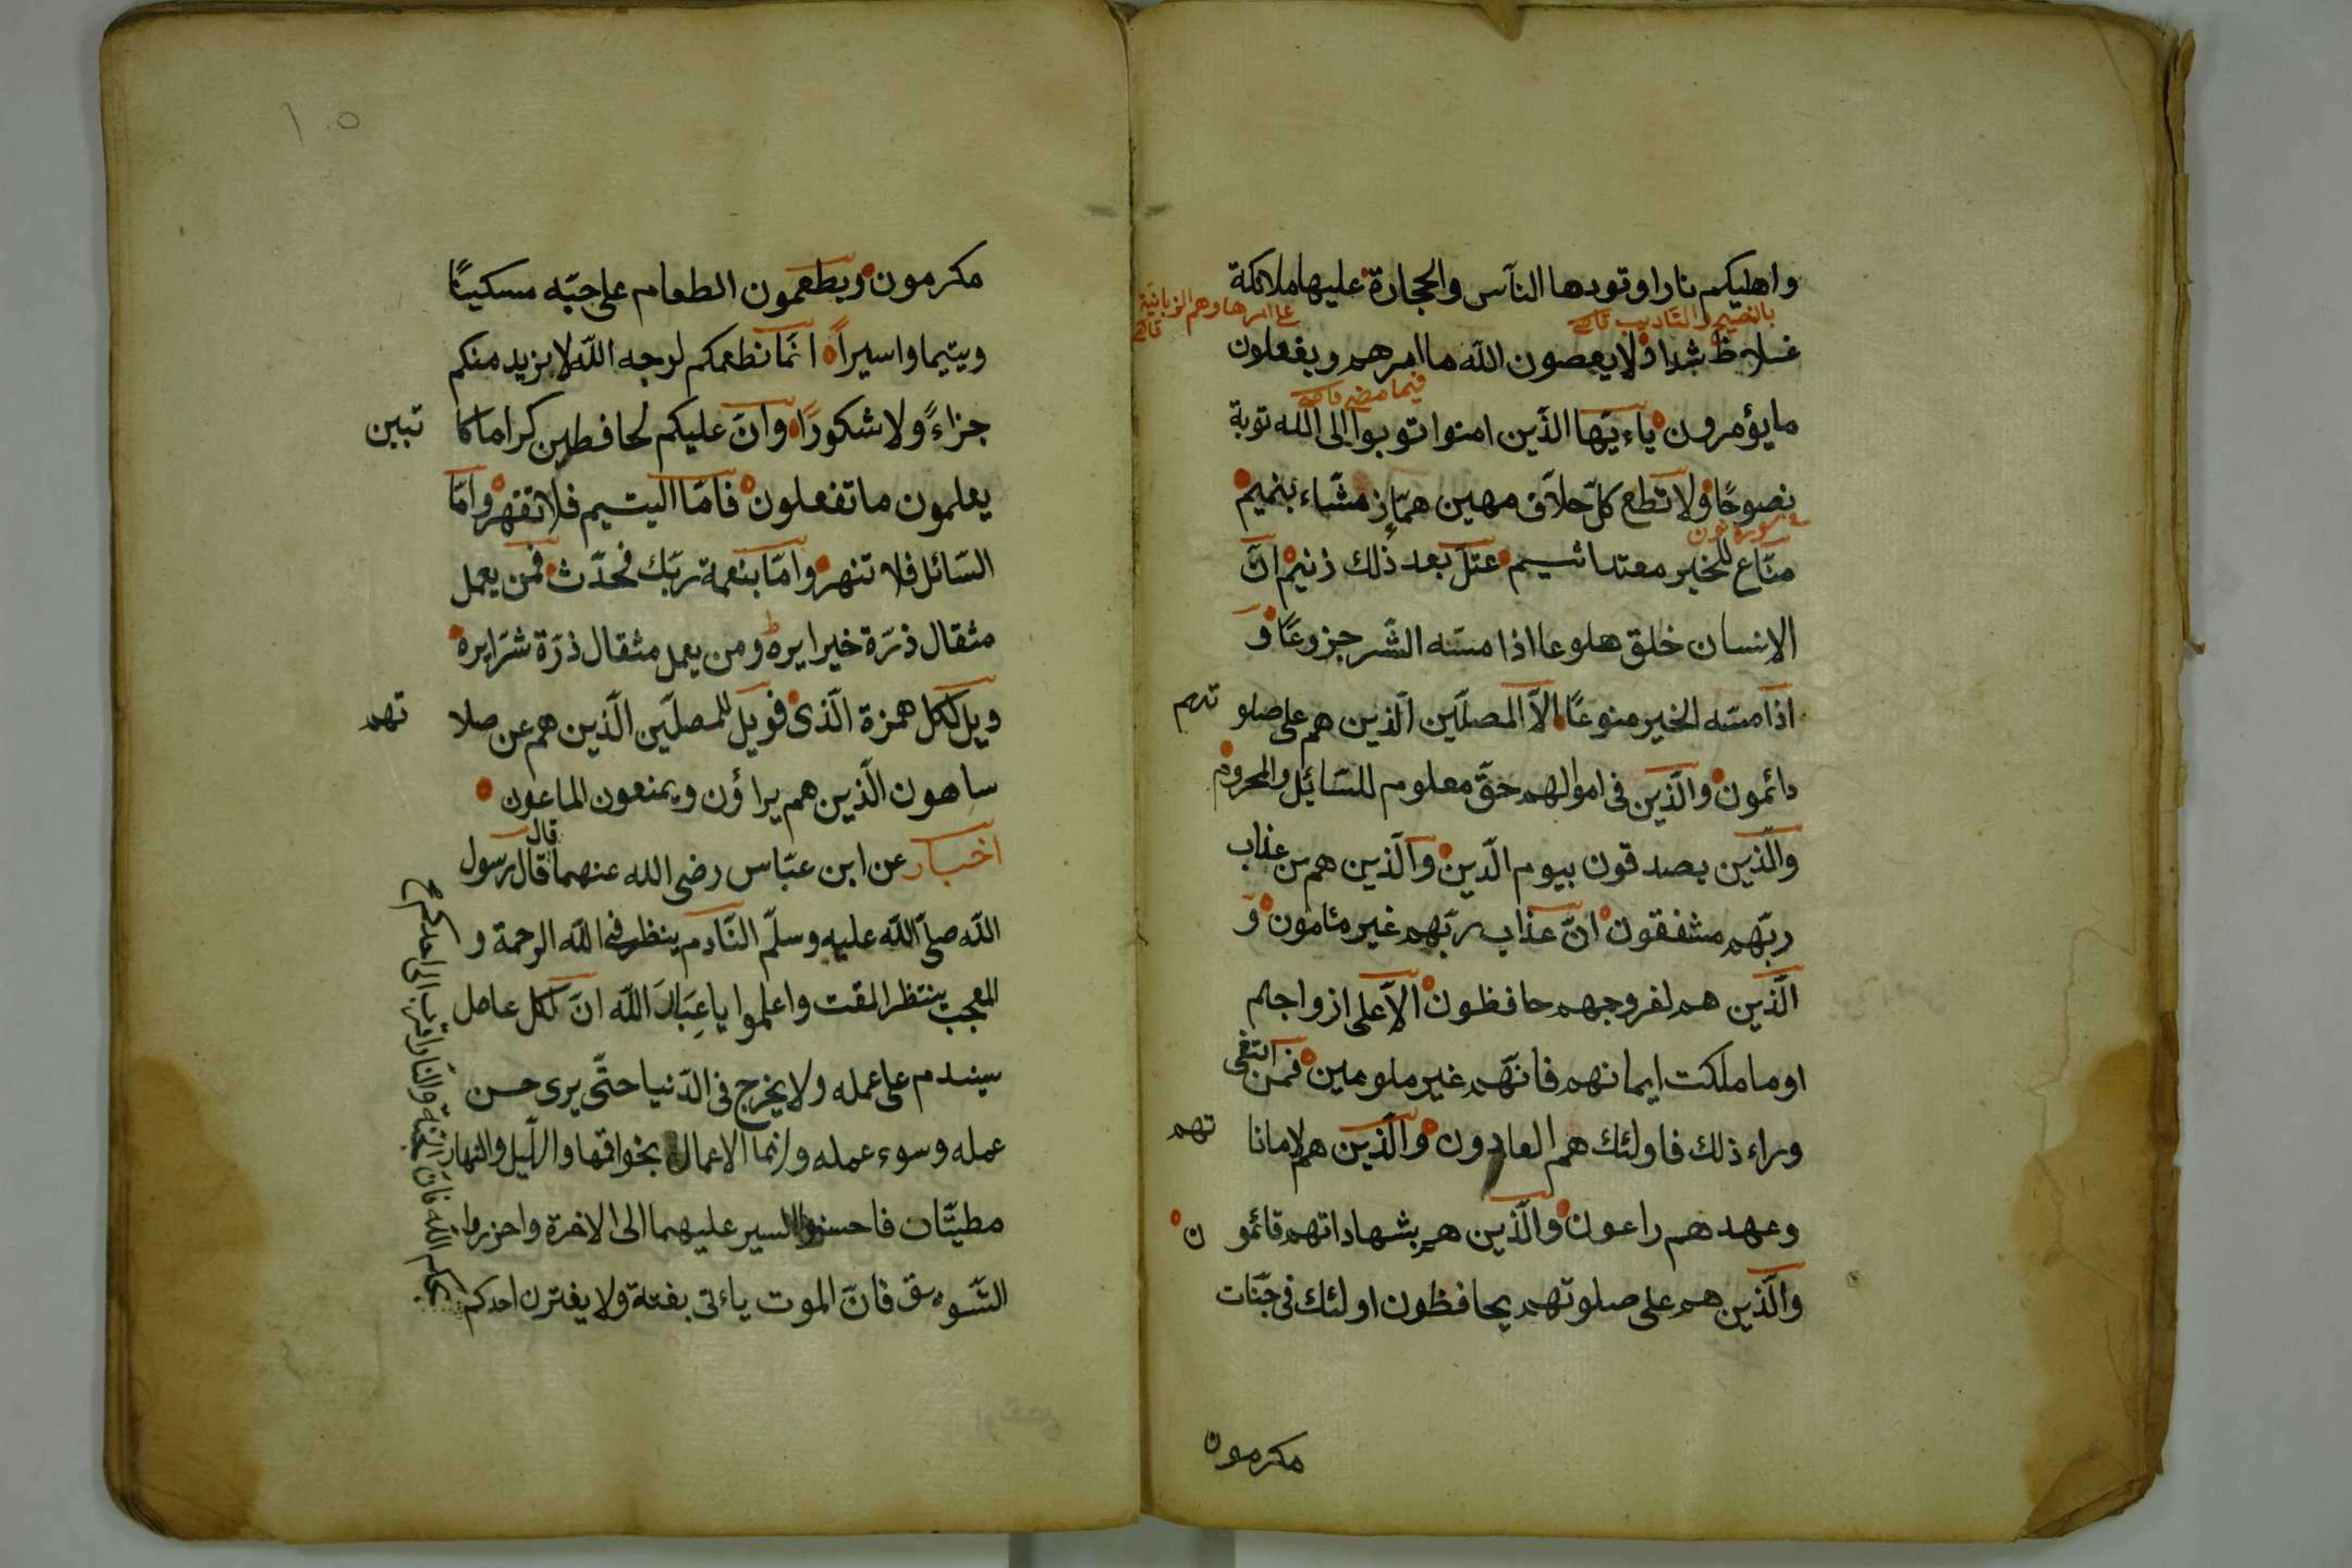 واهليكم نارا وقودها الناس والحجارة عليها ملائكة
بالنصح والتاديب قاضى
على امرها وهم الزبانية
قاضى
غلاظ شداد لا يعصون الله ما امرهم ويفعلون
فيما مضى قاضى
ما يؤمرون ياءيّها الّذين امنوا توبوا الى الله توبة
نصوحًا ولا تطع كلّ حلاّف مهين همّاز مشّاء بنميم
فى سورة نون
منّاع للخير معتد اثيم عتلّ بعد ذلك زنيم انّ
الانسان خلق هلوعا اذا مسّه الشّر جزوعًا و
اذا مسّه الخير منوعًا الاّ المصلّين الّذين هم على صلوتهم
دائمون والّذين فى اموالهم حقّ معلوم للسّائل والمحروم
والّذين يصدقون بيوم الّدين والّذين هم من عذاب
ربّهم مشفقون انّ عذاب ربّهم غير مئامون و
الّذين هم لفروجهم حافظون الاّ على ازواجهم
او ما ملكت ايمانهم فانّهم غير ملومين فمن ابتغى
وراء ذلك فاولئك هم العادون والّذين هم لاماناتهم
وعهدهم راعون والّذين هم بشهاداتهم قائمون
والّذين هم على صلوتهم يحافظون اولئك فى جنّات
مكرمون
١٠٥
مكرمون ويطعمون الطعام على حبّه مسكينًا
ويتيما واسيراً انّما نطعمكم لوجه اللّه لا نريد منكم
جزاءً ولا شكورًا وانّ عليكم لحافظين كراما كاتبين
يعلمون ما تفعلون فامّا اليتيم فلا تقهر وامّا
السّائل فلا تنهر وامّا بنعمة ربّك فحدّث فمن يعمل
مثقال ذرّة خيرا يره ومن يعمل مثقال ذرّة شرّا يره
ويل لكل همزة الّذى فويل للمصلّين الّذين هم عن صلاتهم
ساهون الّذين هم يراؤن ويمنعون الماعون
اخبار عن ابن عبّاس رضى الله عنهما قال قال رسول
اللّه صلّى اللّه عليه وسلّم النّادم ينظر من اللّه الرحمة و
المعجب ينتظر المقت واعلموا يا عِبَادَ اللّه انّ لكل عامل
سيندم على عمله ولا يخرج فى الدّنيا حتّى يرى حسن
عمله وسوء عمله وانما الاعمال بخواتمها والّليل والنهار
مطيّتان فاحسنوا السير عليهما الى الاخرة واحذروا
التّسويق فانّ الموت ياءتى بغتة ولا يغترن احدكم
بحلم اللّه فانّ الجنّة والنار اقرب الى احدكم